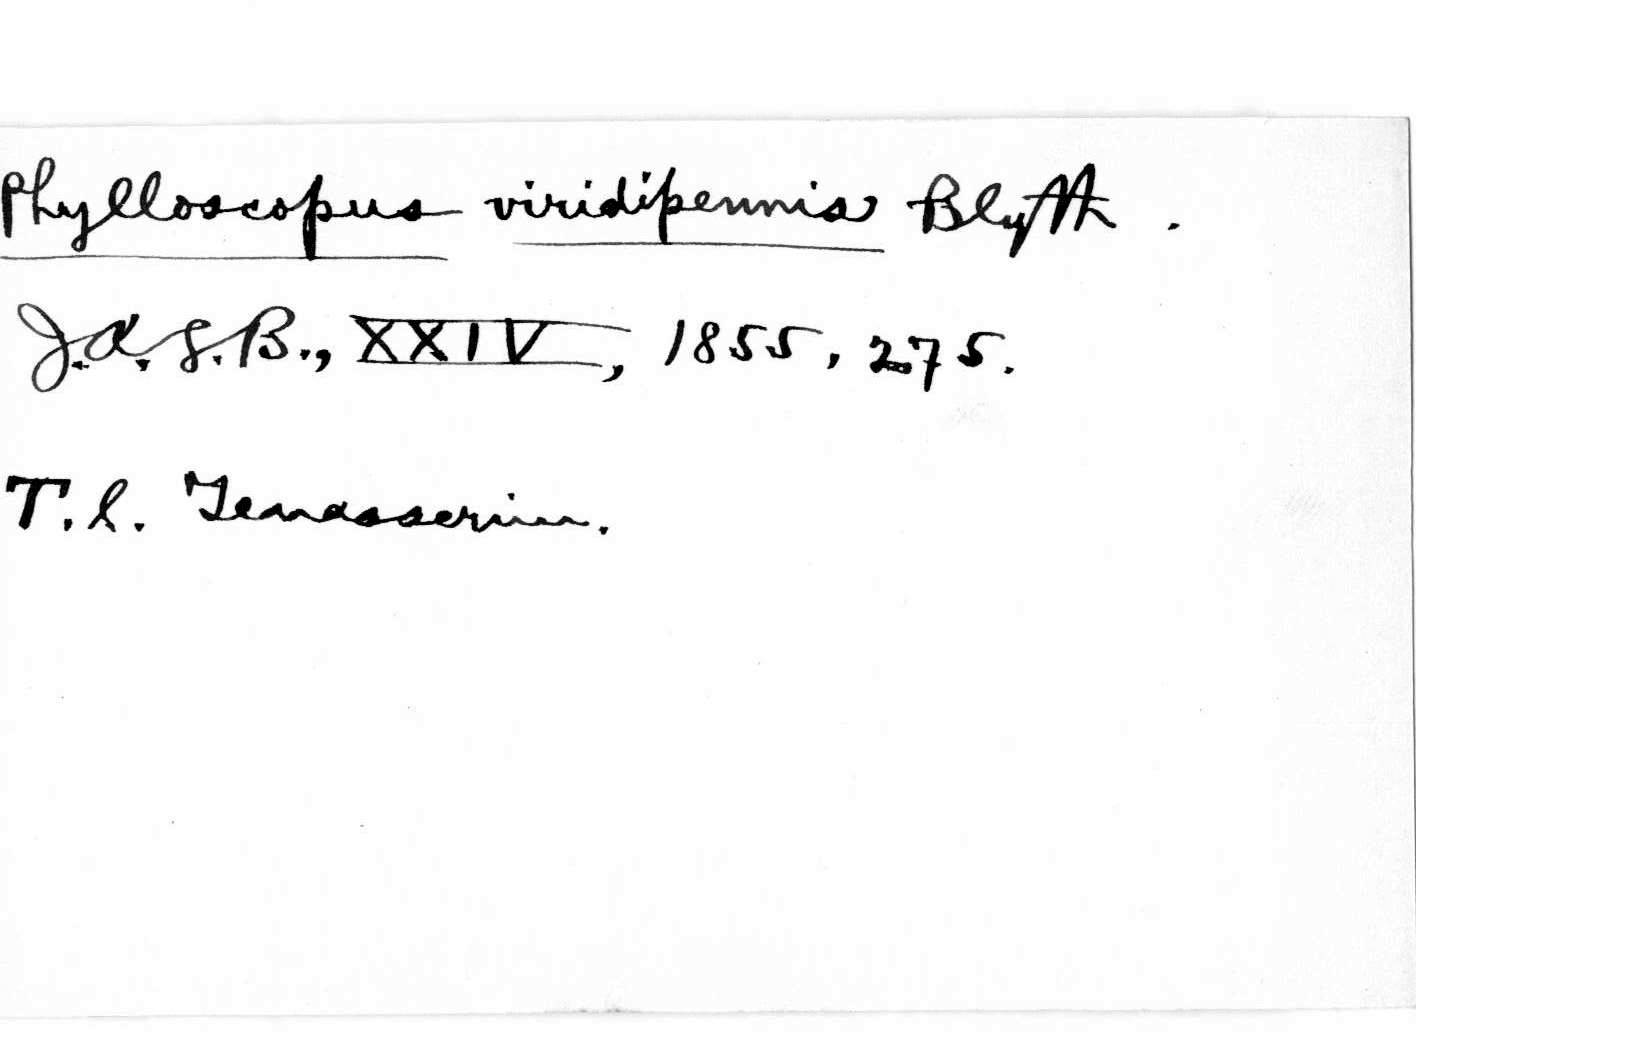 Phylloscopus viridipennis Blyth.
J.A.S.B., XXIV, 1855, 275.
T.l. Tenasserim.